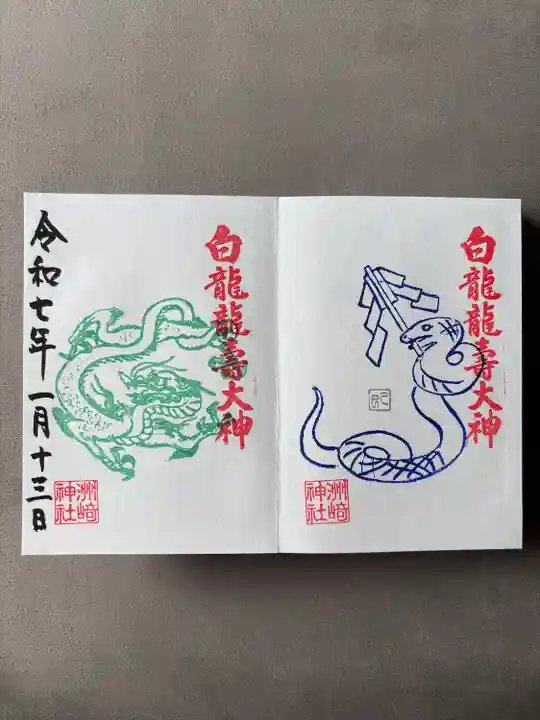 白龍龍壽大神
洲﨑
神社
令和七年一月十三日
白龍龍壽大神
巳
洲﨑
神社